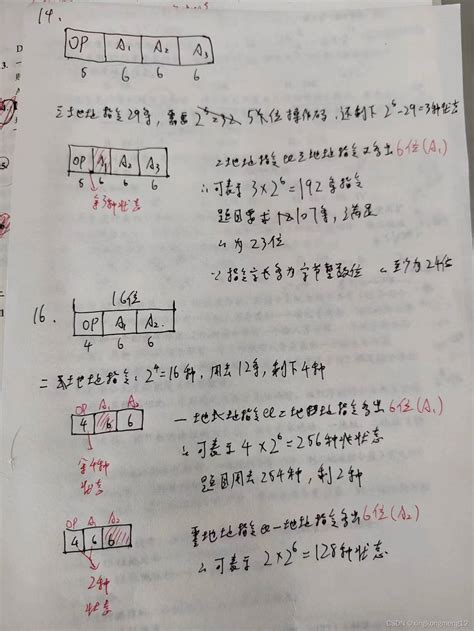 14.
OP A₁ A₂ A₃
5 6 6 6
三地址指令29条,需要2⁵=32 5个位操作码,还剩下2⁵-29=3种状态
OP A₁ A₂ A₃
5 6 6 6
余3种状态
二地址指令比三地址指令多出6位(A₁)
∴可表示3×2⁶=192条指令
题目要求107条,满足
∴为23位
∵指令字长为字节整数位 ∴至少为24位
16位
16.
OP A₁ A₂
4 6 6
二地址指令:2⁴=16种,用去12条,剩下4种
OP A₁ A₂
4 6 6
余4种
状态
一地址指令比二地址指令多出6位(A₁)
∴可表示4×2⁶=256种状态
题目用去254种,剩2种
OP A₁ A₂
4 6 6
2种
状态
零地址指令比一地址指令多出6位(A₂)
∴可表示2×2⁶=128种状态